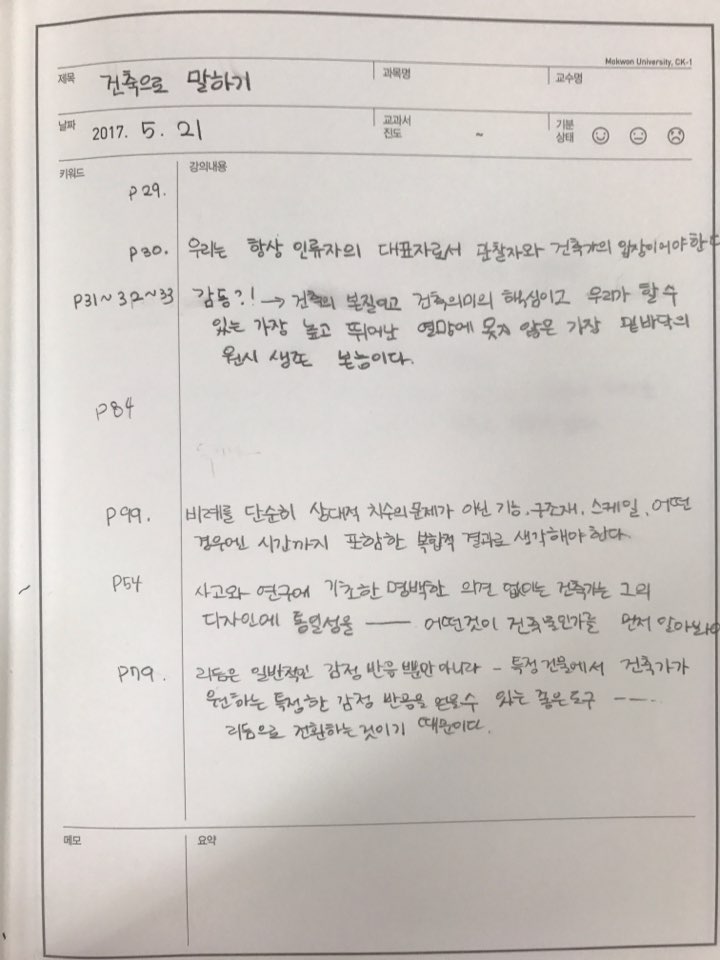 Mokwon University, CK-1
제목 건축으로 말하기 과목명 교수명
날짜 2017. 5. 21 교과서 진도 ~ 기분 상태
키워드 강의내용
P29.
P30. 우리는 항상 인류자의 대표자로서 관찰자와 건축가의 입장이어야 한다
P31~32~33 감동?! → 건축의 본질이고 건축의미의 핵심이고 우리가 할 수
있는 가장 높고 뛰어난 열망에 못지 않은 가장 밑바닥의
원시 생존 본능이다.
P84
P99. 비례를 단순히 상대적 치수의 문제가 아닌 기능, 구조재, 스케일, 어떤
경우엔 시간까지 포함한 복합적 결과로 생각해야 한다.
P54 사고와 연구에 기초한 명백한 의견 없이는 건축가는 그의
디자인에 통일성을 —— 어떤것이 건축물인가를 먼저 알아보
P79. 리듬은 일반적인 감정 반응 뿐만 아니라 - 특정 건물에서 건축가가
원하는 특정한 감정 반응을 얻을 수 있는 좋은 도구 ——.
리듬으로 전환하는 것이기 때문이다.
메모 요약